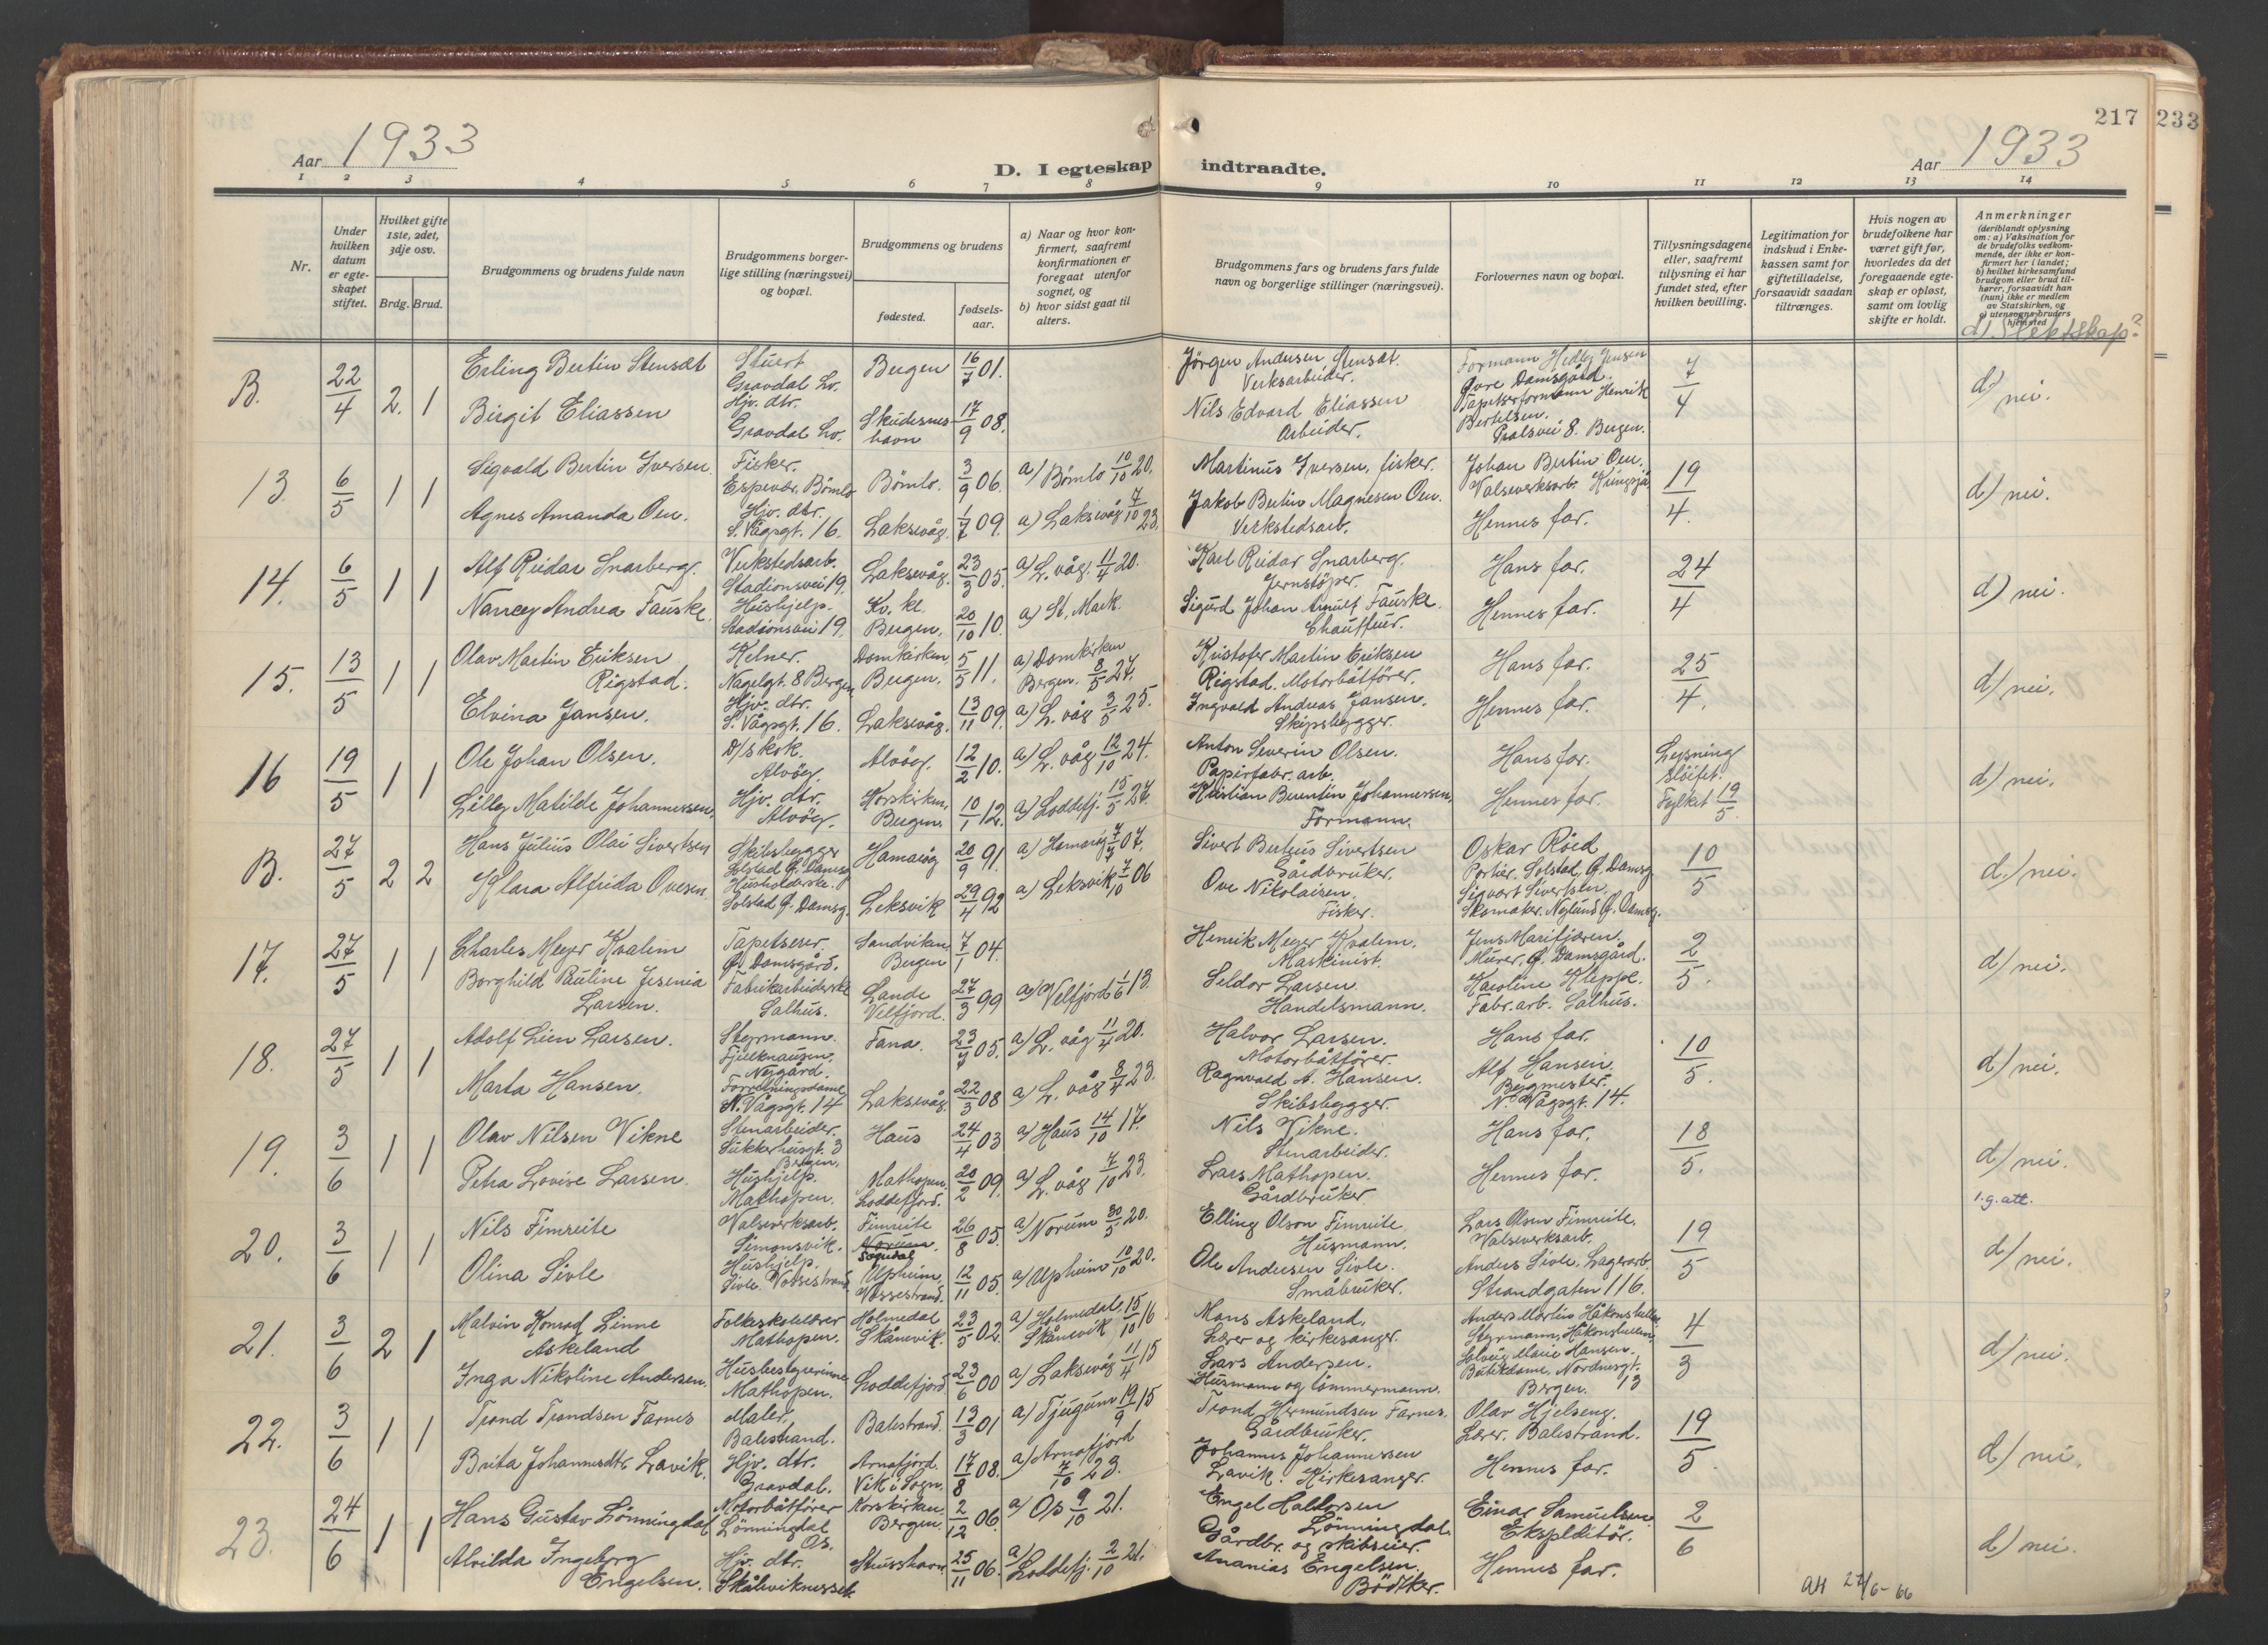 217 233
Aar 1933
D. I egteskap indtraadte.
Aar 1933
1 2 3 4 5 6 7 8 9 10 11 12 13 14
Nr.
Under hvilken datum er egteskapet stiftet.
Hvilket gifte 1ste, 2det, 3dje osv.
Brdg. Brud.
Brudgommens og brudens fulde navn
Brudgommens borgerlige stilling (næringsvei) og bopæl.
Brudgommens og brudens
fødested.
fødselsaar.
a) Naar og hvor konfirmert, saafremt konfirmationen er foregaat utenfor sognet, og
b) hvor sidst gaat til alters.
Brudgommens fars og brudens fars fulde navn og borgerlige stillinger (næringsvei).
Forlovernes navn og bopæl.
Tillysningsdagene eller, saafremt tillysning ei har fundet sted, efter hvilken bevilling.
Legitimation for indskud i Enkekassen samt for giftetilladelse, forsaavidt saadan tiltrænges.
Hvis nogen av brudefolkene har været gift før, hvorledes da det foregaaende egteskap er opløst, samt om lovlig skifte er holdt.
Anmerkninger
(deriblandt oplysning om: a) Vaksination for de brudefolks vedkommende, der ikke er konfirmert her i landet;
b) hvilket kirkesamfund brudgom eller brud tilhører, forsaavidt han (hun) ikke er medlem av Statskirken, og
c) utensogns bruders hjemsted
d) Slektskap?
B. 22/4 2. 1 Erling Bertin Stensæt Stuert Gravdal Lv. Bergen 16/7 01. Jörgen Andersen Stensæt. Verksarbeider. Formann Hedley Jensen Øvre Damsgård. 7/4 d) nei.
Birgit Eliassen Hjv. dtr. Gravdal Lv. Skudesneshavn 17/9 08. Nils Edvard Eliassen Arbeider. Tapetserformann Henrik Bertelsen. 8. Bergen.
13. 6/5 1 1 Sigvald Bertin Iversen. Fisker. Espevær. Bömlo Bömlo. 3/9 06. a) Bömlo 10/10 20. Martinus Iversen, fisker. Johan Bertin Oen. Valseverksarb. 19/4. d) nei.
Agnes Amanda Oen. Hjv. dtr. S. Vågsgt. 16. Laksevåg. 1/7 09. a) Laksevåg 7/10 23. Jakob Bertin Magnesen Oen. Verkstedsarb. Hennes far.
14. 6/5 1 1 Alf Reidar Snarberg. Verkstedsarb. Stadionsvei 19. Laksevåg. 23/3 05. a) L. våg. 11/4 20. Karl Reidar Snarberg. Jernstöper. Hans far. 24/4 d) nei.
Nancy Andrea Fauske. Hushjelp. Stadionsvei 19. Kv. kl. Bergen. 20/10 10. a) St. Mark. Sigurd Johan Arnulf Fauske. Chauffeur. Hennes far.
15. 13/5 1 1 Olav Martin Eriksen Rigstad. Kelner. Nagelgt. 8 Bergen Domkirken Bergen. 5/5 11. a) Domkirken Bergen. 8/5 27. Kristofer Martin Eriksen Rigstad. Motorbåtförer. Hans far. 25/4. d) nei.
Elvina Jansen. Hjv. dtr. S. Vågsgt. 16. Laksevåg. 13/11 09. a) L. våg 3/5 25. Ingvald Andreas Jansen. Skipsbygger. Hennes far.
16 19/5 1 1 Ole Johan Olsen. D/s kok. Alvöy. Alvöy. 12/2 10. a) L. våg 12/10 24. Anton Severin Olsen. Papirfabr. arb. Hans far. Lysning slöifet. Fylket 19/5. d) nei.
Lilly Matilde Johannessen. Hjv. dtr. Alvöy. Korskirken Bergen. 10/1 12. a) Loddefj. 15/5 27. Kristian Berentin Johannessen. Formann. Hennes far.
B. 27/5 2 2 Hans Julius Olai Sivertsen Skibsbygger Solstad Ö. Damsg. Hamaröy 20/9 91 a) Hamaröy 7/7 07. Sivert Berteus Sivertsen Gårdbruker. Oskar Röed Portier. Solstad, Ö. Damsg. 10/5 d.) nei.
Klara Alfrida Ovesen. Husholderske. Solstad Ö. Damsg. Leksvik 29/4 92 a) Leksvik 7/10 06 Ove Nikolaisen. Fisker. Sigvart Sivertsen. Skomaker. Nylund Ö. Damsg.
17. 27/5 1 1 Charles Meyer Kvalem Tapetserer. Ö. Damsgård. Sandviken Bergen 7/1 04. Henrik Meyer Kvalem. Maskinist. Jens Marifjæren. Murer. Ö. Damsgård. 2/5. d) nei.
Borghild Pauline Jesenia Larsen. Fabrikarbeiderske Salhus. Lande Velfjord. 27/3 99 a) Velfjord 1/6 13. Seldor Larsen. Handelsmann. Karoline Kleppe. Fabr. arb. Salhus.
18. 27/5 1 1 Adolf Lien Larsen. Styrmann. Nygård. Fana. 23/7 05. a) L. våg 11/4 20. Halvor Larsen. Motorbåtförer. Hans far. 10/5. d) nei.
Marta Hansen. Forretningsdame N. Vågsgt. 14 Laksevåg. 22/3 08 a) L. våg 8/4 23. Ragnvald A. Hansen. Skibsbygger. Alf Hansen. Bygmester. N. Vågsgt. 14.
19. 3/6 1 1 Olav Nilsen Vikne Stenarbeider. Sukkerhusgt. 3 Bergen. Haus 24/4 03 a) Haus 14/10 17. Nils Vikne. Stenarbeider. Hans far. 18/5. d) nei.
Petra Lovise Larsen. Hushjelp. Mathopen. Mathopen. Loddefjord. 20/2 09. a) L. våg 7/10 23. Lars Mathopen. Gårdbruker Hennes far. 1.g.att.
20. 3/6 1 1 Nils Fimreite Valseverksarb. Simonsvik. Fimreite Norum. Sogndal 26/8 05. a) Norum 30/5 20. Elling Olson Fimreite. Husmann. Lars Olsen Fimreite. Valseverksarb. 19/5 d) nei.
Olina Sivle Hushjelp. Sivle. Vossestrand. Upheim, Vossestrand. 12/11 05. a) Upheim 10/10 20. Ole Andersen Sivle. Småbruker. Anders Sivle. Lagerarb. Strandgaten 116.
21. 3/6 2 1 Malvin Konrad Linne Askeland Folkeskolelærer Mathopen. Holmedal Skånevik. 23/5 02. a) Holmedal Skånevik 15/10 16 Mons Askeland. Lærer og kirkesanger. Anders Martin Håkonshellen Styrmann, Håkonshellen. 4/3 d) nei.
Inga Nikoline Andersen. Husbestyrerinne Mathopen. Loddefjord 23/6 00 a) Laksevåg 11/4 15 Lars Andersen. Husmann og tömmermann. Solveig Marie Hansen. Butikdame, Nordnesgt. 13 Bergen.
22. 3/6 1 1 Trond Trondsen Farnes Maler, Balestrand. Balestrand. 13/3 01 a) Tjugum 19/9 15 Trond Hermundsen Farnes. Gårdbruker. Olav Hjelseng. Lærer. Balestrand. 19/5. d) nei.
Brita Johannesdtr. Lavik. Hjv. dtr. Gravdal. Arnafjord. Vik i Sogn. 17/8 08. a) Arnafjord 7/10 23. Johannes Johannessen Lavik. Kirkesanger. Hennes far.
23. 24/6 1 1 Hans Gustav Lönningdal Motorbåtförer Lönningdal Os. Korskirken Bergen. 2/12 06. a) Os 9/10 21. Engel Haldorsen Lönningdal. Gårdbr. og skibseier. Einar Samuelsen. Ekspeditör. 2/6 d) nei.
Alvilda Ingeborg Engelsen. Hjv. dtr. Skåleviknesset. Stusshavn 25/11 06. a) Loddefj. 2/10 21. Ananias Engelsen. Bödker. Hennes far.
att 27/6-66